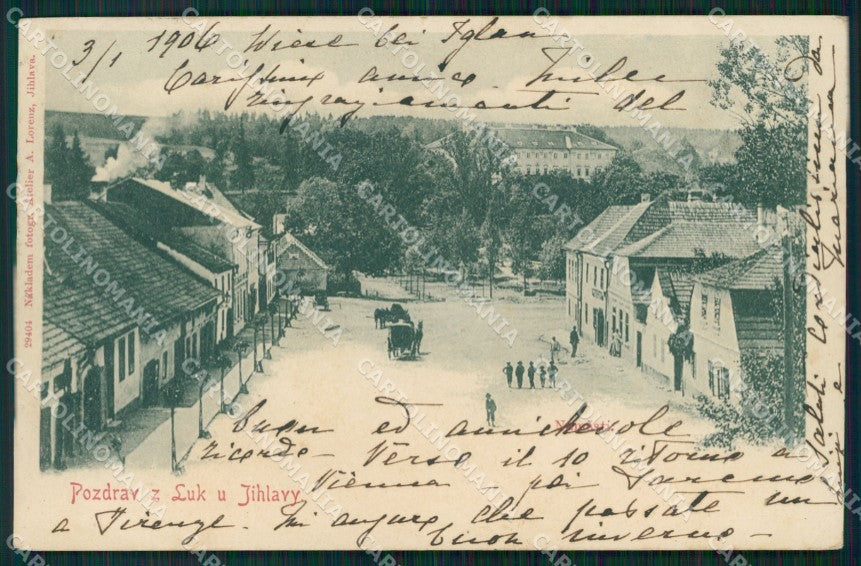 3/1 1906 Wiese bei Iglau
Carissimi amici. Interi
ringraziamenti del
buon ed amichevole
ricordo - Verso il 10 ritorno a
Vienna - poi saremo
a Firenze. Mi auguro che passate un
buon inverno -
Saluti cordialissimi da
Náměstí.
Pozdrav z Luk u Jihlavy
29404 Nákladem fotogr. Atelier A. Lorenz, Jihlava.
CARTOLINOMANIA